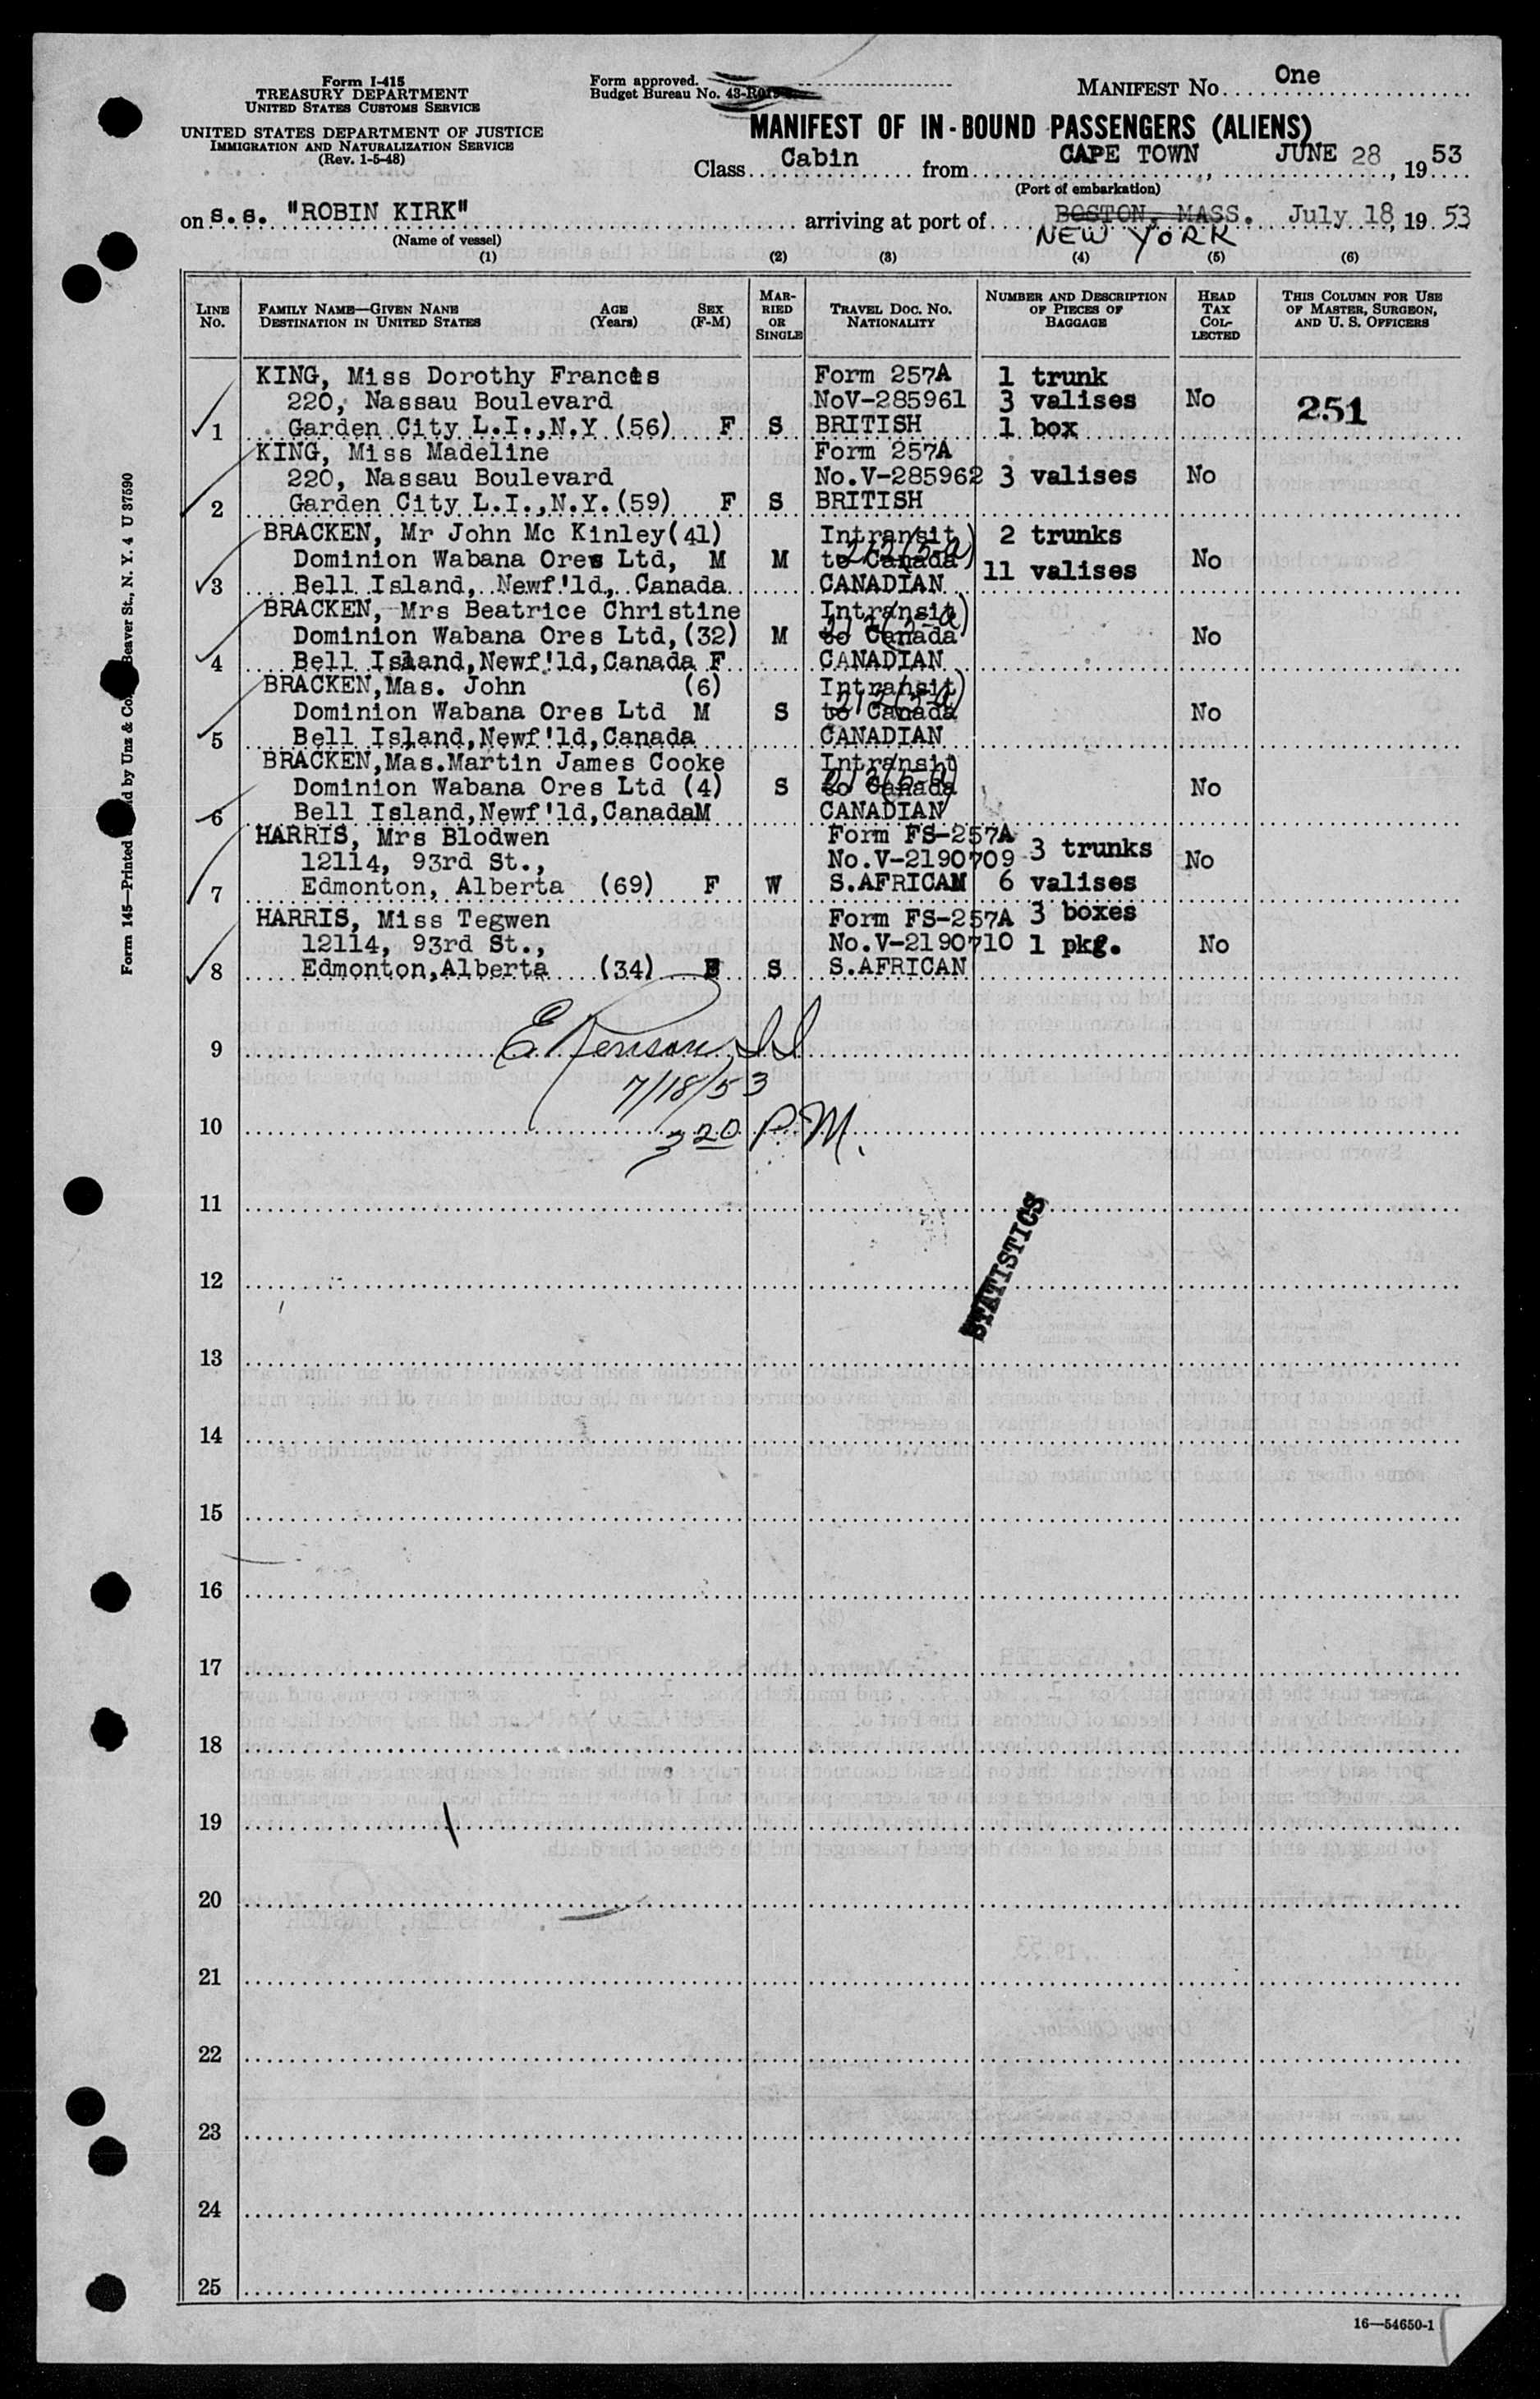 Form I-415
TREASURY DEPARTMENT
UNITED STATES CUSTOMS SERVICE
UNITED STATES DEPARTMENT OF JUSTICE
IMMIGRATION AND NATURALIZATION SERVICE
(Rev. 1-5-48)
Form approved.
Budget Bureau No. 43-
MANIFEST NO. One
MANIFEST OF IN-BOUND PASSENGERS (ALIENS)
Class Cabin from CAPE TOWN, JUNE 28, 1953
(Port of embarkation)
on s.s. "ROBIN KIRK" arriving at port of BOSTON, MASS. July 18, 1953
NEW YORK
(Name of vessel)
(1) (2) (3) (4) (5) (6)
LINE NO. FAMILY NAME—GIVEN NAME DESTINATION IN UNITED STATES AGE (Years) SEX (F-M) MARRIED OR SINGLE TRAVEL DOC. NO. NATIONALITY NUMBER AND DESCRIPTION OF PIECES OF BAGGAGE HEAD TAX COLLECTED THIS COLUMN FOR USE OF MASTER, SURGEON, AND U. S. OFFICERS
KING, Miss Dorothy Frances Form 257A 1 trunk
220, Nassau Boulevard NoV-285961 3 valises No 251
1 Garden City L.I.,N.Y (56) F S BRITISH 1 box
KING, Miss Madeline Form 257A
220, Nassau Boulevard No.V-285962 3 valises No
2 Garden City L.I.,N.Y. (59) F S BRITISH
BRACKEN, Mr John Mc Kinley(41) Intransit 2 trunks
Dominion Wabana Ores Ltd, M M to Canada 212(5-a) 11 valises No
3 Bell Island, Newf'ld, Canada CANADIAN
BRACKEN, Mrs Beatrice Christine Intransit
Dominion Wabana Ores Ltd,(32) M to Canada 212(5-a) No
4 Bell Island,Newf'ld,Canada F CANADIAN
BRACKEN,Mas. John (6) Intransit
Dominion Wabana Ores Ltd M S to Canada 212(5-a) No
5 Bell Island,Newf'ld,Canada CANADIAN
BRACKEN,Mas.Martin James Cooke Intransit
Dominion Wabana Ores Ltd (4) S to Canada 212(5-a) No
6 Bell Island,Newf'ld,CanadaM CANADIAN
HARRIS, Mrs Blodwen Form FS-257A
12114, 93rd St., No.V-2190709 3 trunks No
7 Edmonton, Alberta (69) F W S.AFRICAN 6 valises
HARRIS, Miss Tegwen Form FS-257A 3 boxes
12114, 93rd St., No.V-2190710 1 pkg. No
8 Edmonton,Alberta (34) F S S.AFRICAN
9
7/18/53
10
3 20 P.M.
11
STATISTICS
12
13
14
15
16
17
18
19
20
21
22
23
24
25
16—54650-1
Form 145—Printed
d by Unz & Co
Beaver St., N. Y. 4 U 37590